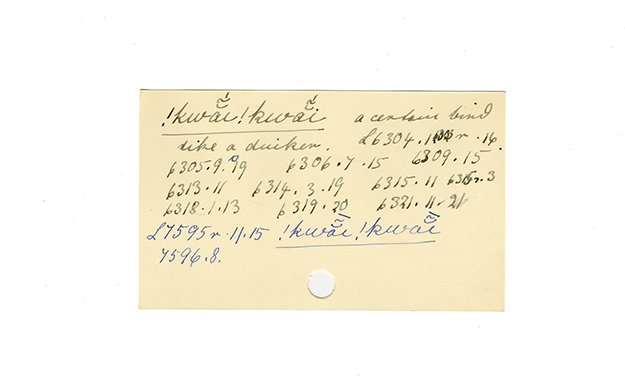 !kwãĭ !kwãĭ a certain bird
like a duiker. L6304. r. 16.
6305.9. 6306.7.15 6309.15.
6313.11 6314.3.19 6315.11
6318.1.13 6319.20 6321.11-21
L7595 r. 11.15 !kwãĭ !kwãĭ
7596.8.